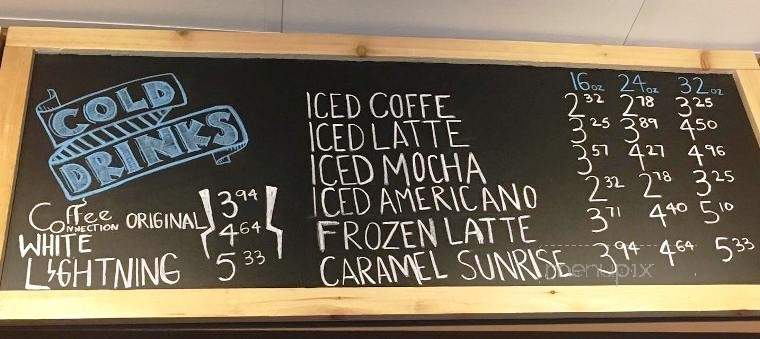 COLD
DRINKS
Coffee CONNECTION ORIGINAL
WHITE
LIGHTNING
3 94
4 64
5 33
16oz 24oz 32oz
ICED COFFE 2 32 2 78 3 25
ICED LATTE 3 25 3 89 4 50
ICED MOCHA 3 57 4 27 4 96
ICED AMERICANO 2 32 2 78 3 25
FROZEN LATTE 3 71 4 40 5 10
CARAMEL SUNRISE 3 94 4 64 5 33
menupix